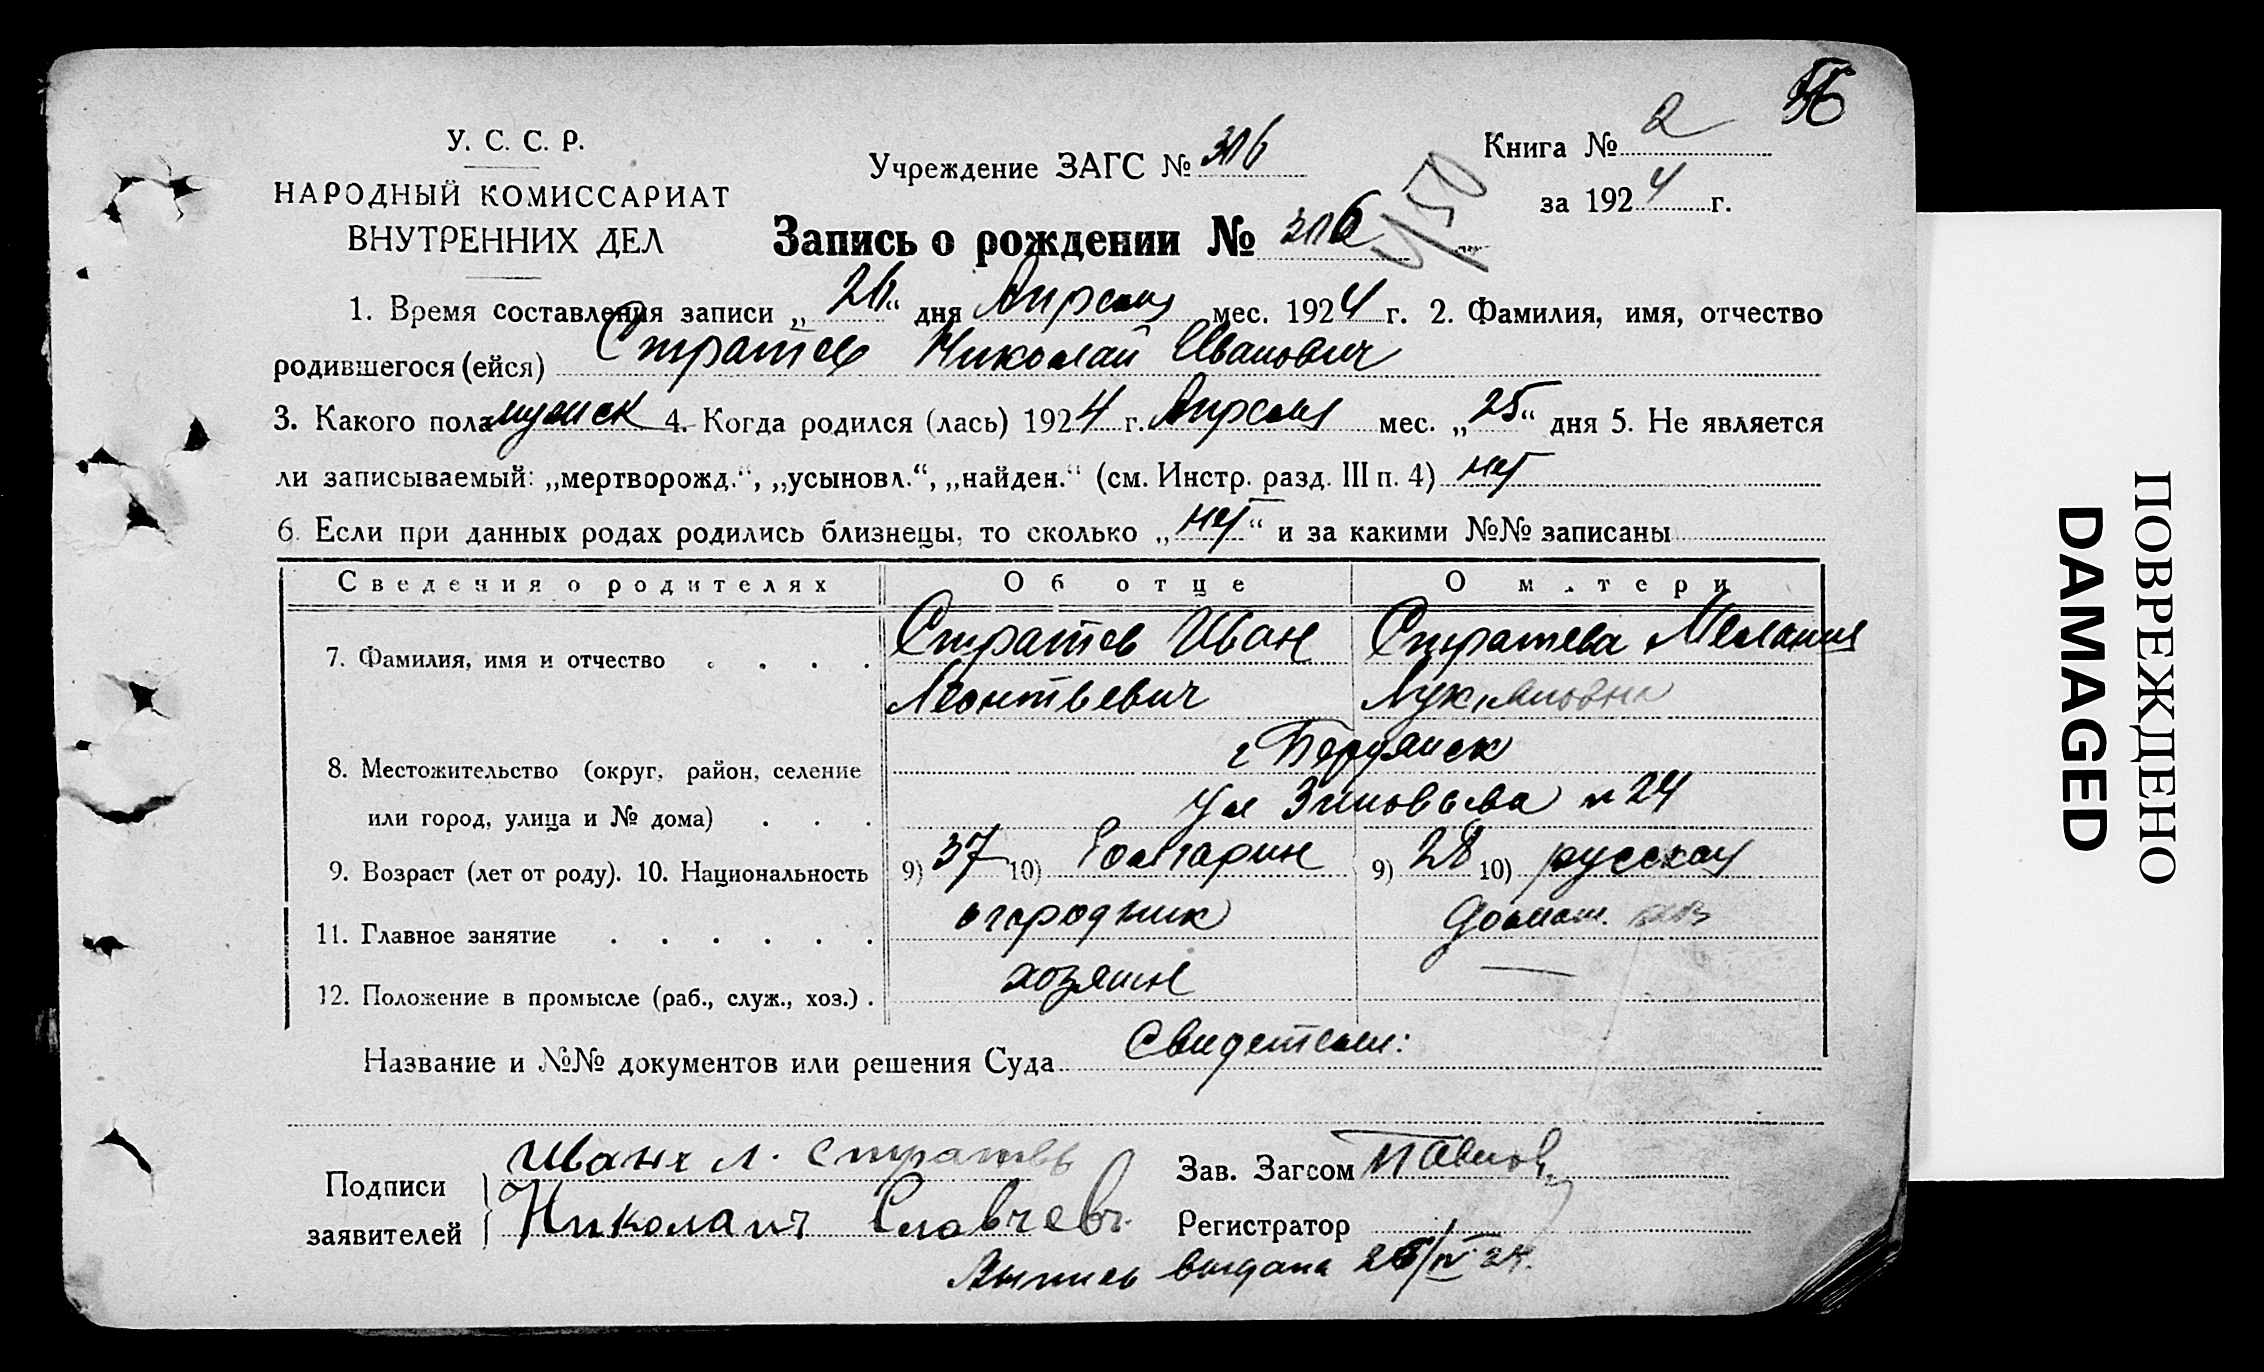 У. С. С. Р.
НАРОДНЫЙ КОМИССАРИАТ
ВНУТРЕННИХ ДЕЛ
Учреждение ЗАГС № 316
Книга № 2
за 1924 г.
Запись о рождении № 316
450
1. Время составления записи „26“ дня Апреля мес. 1924 г. 2. Фамилия, имя, отчество
родившегося (ейся) Стратев Николай Иванович
3. Какого пола мужск 4. Когда родился (лась) 1924 г. Апреля мес. „25“ дня 5. Не является
ли записываемый: „мертворожд.“, „усыновл.“, „найден.“ (см. Инстр. разд. III п. 4) нет
6. Если при данных родах родились близнецы, то сколько „нет“ и за какими №№ записаны
Сведения о родителях Об отце О м тери
7. Фамилия, имя и отчество . . . . Стратев Иван Стратева Мелания
Леонтьевич
г Бердянск
8. Местожительство (округ, район, селение
или город, улица и № дома) . . . ул Зиновьева № 24
9. Возраст (лет от роду). 10. Национальность 9) 37 10) болгарин 9) 28 10) русская
11. Главное занятие . . . . . . огородник домаш.
12. Положение в промысле (раб., служ., хоз.) . хозяин —
Название и №№ документов или решения Суда Свидетели:
Подписи
заявителей
Иван Л. Стратевъ
Николай Славчевъ
Зав. Загсом Павлов
Регистратор
Выпись выдана 26/IV 24.
ПОВРЕЖДЕНО
DAMAGED